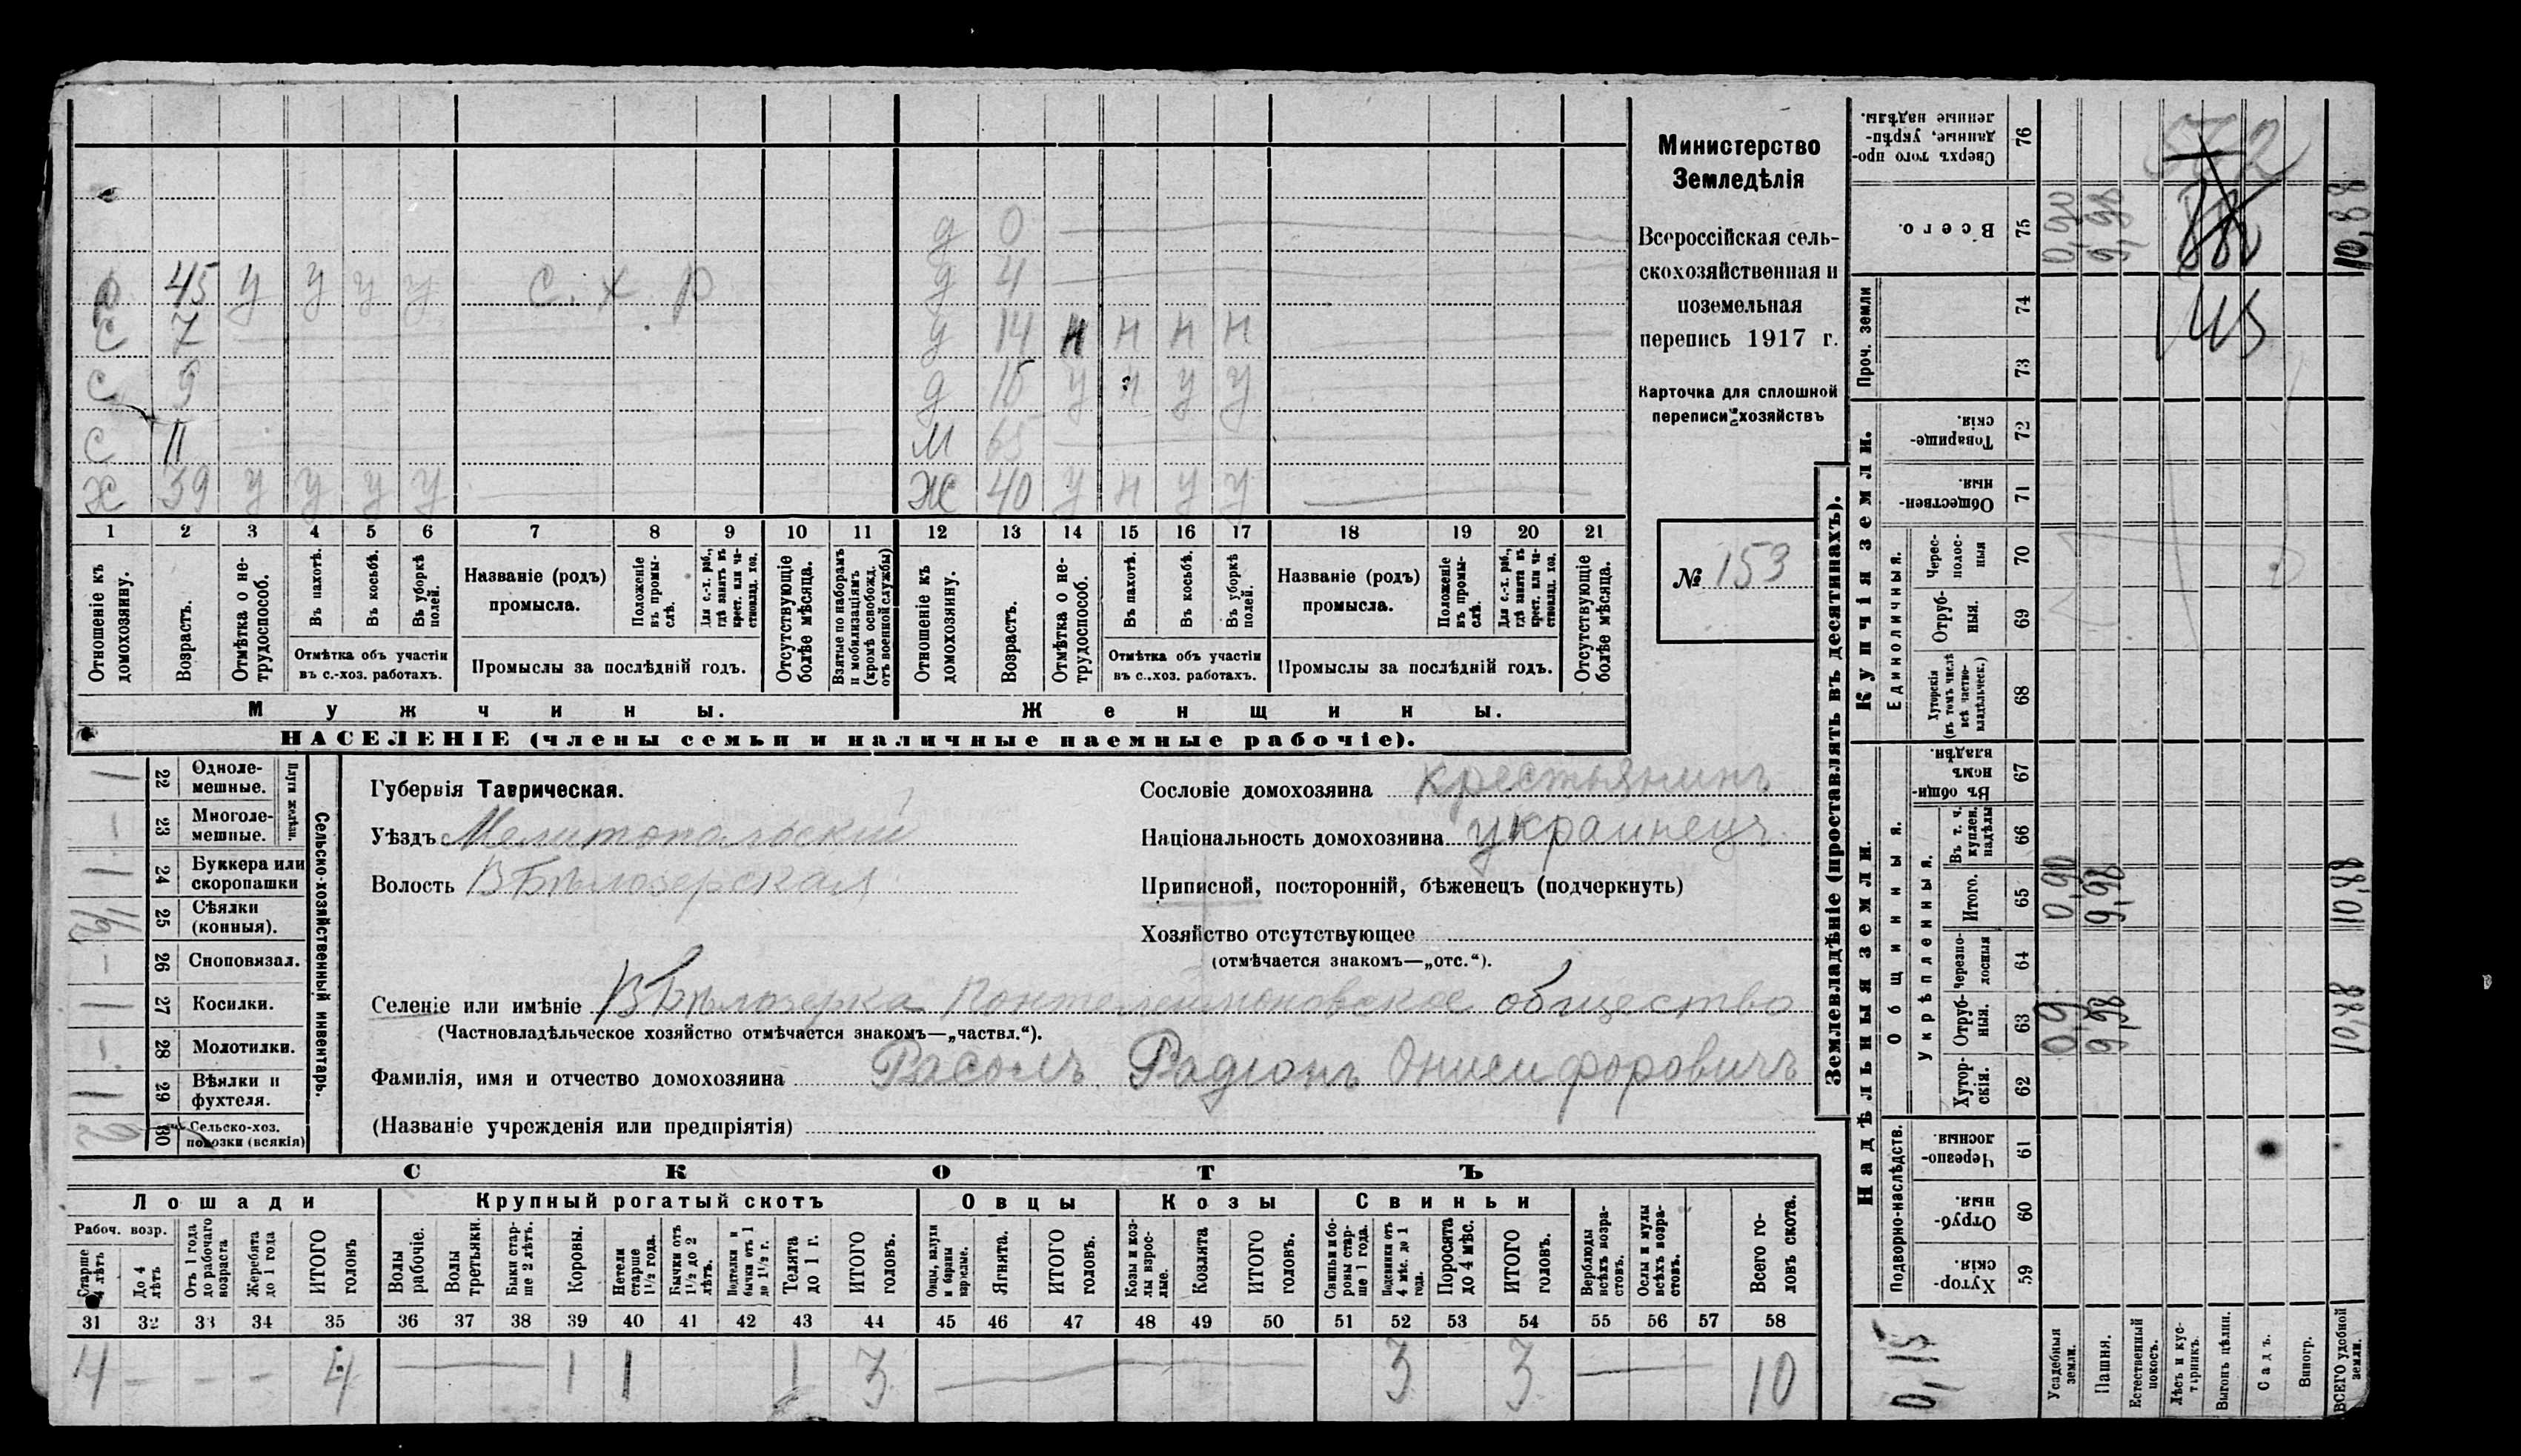 д 0
р 45 у у у у с. х р д 4
с 7 д 14 н н н н
с 9 д 16 у н у у
с 11 м 65
х 39 у у у у ж 40 у н у у
1 2 3 4 5 6 7 8 9 10 11 12 13 14 15 16 17 18 19 20 21
Отношеніе къ домохозяину.
Возрастъ.
Отмѣтка о не-трудоспособ.
Въ пахотѣ.
Въ косьбѣ.
Въ уборкѣ полей.
Отмѣтка объ участіи
въ с.-хоз. работахъ.
Названіе (родъ)
промысла.
Положеніе въ промы-слѣ.
Для с.-х. раб., гдѣ занятъ въ крест. или ча-стновлад. хоз.
Промыслы за послѣдній годъ.
Отсутствующіе болѣе мѣсяца.
Взятые по наборамъ и мобилизаціямъ (кромѣ освобожд. отъ военной службы)
Отношеніе къ домохозяину.
Возрастъ.
Отмѣтка о не-трудоспособ.
Въ пахотѣ.
Въ косьбѣ.
Въ уборкѣ полей.
Отмѣтка объ участіи
въ с..хоз. работахъ.
Названіе (родъ)
промысла.
Положеніе въ промы-слѣ.
Для с.-х. раб., гдѣ занята въ крест. или ча-стновлад. хоз.
Промыслы за послѣдній годъ.
Отсутствующіе болѣе мѣсяца.
Мужчины. Женщины.
НАСЕЛЕНІЕ (члены семьи и наличные наемные рабочіе).
Министерство
Земледѣлія
Всероссійская сель-
скохозяйственная и
поземельная
перепись 1917 г.
Карточка для сплошной
переписи хозяйствъ
№ 153
Сельско-хозяйственный инвентарь.
Плуги желѣзн.
1 22 Одноле-мешные.
– 23 Многоле-мешные.
1 24 Буккера или скоропашки
25 Сѣялки (конныя).
– 26 Сноповязал.
1 27 Косилки.
– 28 Молотилки.
1 29 Вѣялки и фухтеля.
2 30 Сельско-хоз. повозки (всякія)
Губернія Таврическая.
Уѣздъ Мелитопольскій
Волость ВБѣлозерская
Сословіе домохозяина крестьянинъ
Національность домохозяина украинецъ
Приписной, посторонній, бѣженецъ (подчеркнуть)
Хозяйство отсутствующее
(отмѣчается знакомъ—„отс.“).
Селеніе или имѣніе ВБѣлозерка Понтелеимоновское общество
(Частновладѣльческое хозяйство отмѣчается знакомъ—„частвл.“).
Фамилія, имя и отчество домохозяина Расолъ Радіонъ Онисифоровичъ
(Названіе учрежденія или предпріятія)
СКОТЪ
Лошади Крупный рогатый скотъ Овцы Козы Свиньи
Рабоч. возр.
Старше 4 лѣтъ
До 4 лѣтъ
Отъ 1 года до рабочаго возраста
Жеребята до 1 года
ИТОГО головъ
Волы рабочіе.
Волы третьяки.
Быки стар-ше 2 лѣтъ.
Коровы.
Нетели старше 1½ года.
Бычки отъ 1½ до 2 лѣтъ.
Подтелки и бычки отъ 1 до 1½ г.
Телята до 1 г.
ИТОГО головъ.
Овцы, валухи и бараны взрослые.
Ягнята.
ИТОГО головъ.
Козы и коз-лы взрос-лые.
Козлята
ИТОГО головъ.
Свиньи и бо-ровы стар-ше 1 года.
Подсвинки отъ 4 мѣс. до 1 года.
Поросята до 4 мѣс.
ИТОГО головъ.
Верблюды всѣхъ возра-стовъ.
Ослы и мулы всѣхъ возра-стовъ.
Всего го-ловъ скота.
31 32 33 34 35 36 37 38 39 40 41 42 43 44 45 46 47 48 49 50 51 52 53 54 55 56 57 58
4 – – – 4 — 1 1 1 3 — 3 3 — 10
Землевладѣніе (проставлять въ десятинахъ).
Сверхъ того про-данные, укрѣп-ленные надѣлы. 76
Всего. 75 0,90 9,98 10,88
Проч. земли 74 73
145
Купчія земли.
Товарище-скія 72
Обществен-ныя. 71
Единоличныя.
Черес-полос-ныя 70
Отруб-ныя. 69
Хуторскія (въ томъ числѣ всѣ частно-владѣльческ.) 68
Надѣльныя земли.
Общинныя.
Въ общи-номъ владѣн. 67
Укрѣпленныя.
Въ т. ч. куплен. надѣлы 66
Итого. 65 0,90 9,98 10,88
Черезпо-лосныя 64
Отруб-ныя. 63 0,9 9,98 10,88
Хутор-скія. 62
Подворно-наслѣдств.
Черезпо-лосныя 61
Отруб-ныя. 60
Хутор-скія. 59
0,15
Усадебныя земли.
Пашня.
Естественный покосъ.
Лѣсъ и кус-тарникъ.
Выгонъ цѣлин.
Садъ.
Виногр.
ВСЕГО удобной земли.